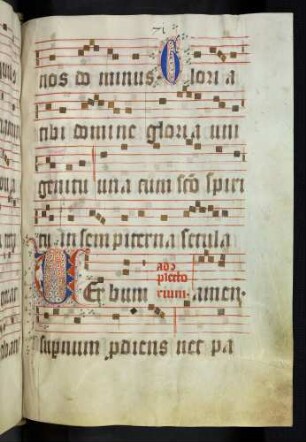 nos do minus Glori a
tibi domine gloria uni
genitu una cum sc̄o spiri
tu in sempiterna secula
amen. ad p̄ceto rium.
Uer bum
supnum pdiens nec pa